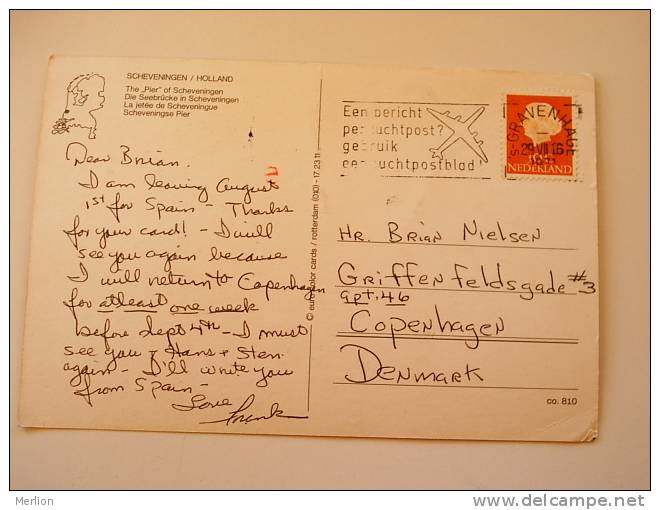 SCHEVENINGEN / HOLLAND
The „Pier" of Scheveningen
Die Seebrücke in Scheveningen
La jetée de Scheveningue
Scheveningse Pier
Dear Brian.
I am leaving August
1st for Spain - Thanks
for your card! - I will
see you again because
I will return to Copenhagen
for atleast one week
before Sept 4th - I must
see you + Hans + Sten
again - I'll write you
from Spain -
Love
Frank
© euro color cards / rotterdam (010) - 17 23 11
Een bericht
per luchtpost?
gebruik
een luchtpostblad
s-GRAVENHAGE
29 VII 16
NEDERLAND
HR. BRIAN NIELSEN
GRIFFENFELDSGADE #3
apt. 46
COPENHAGEN
DENMARK
co. 810
Merlion
http://www.delcampe.net